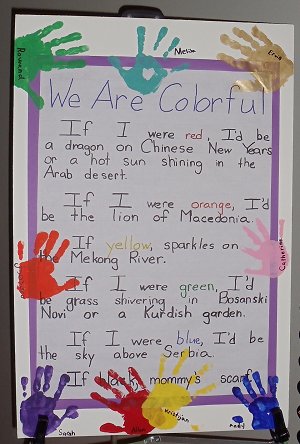 Rosmend
Melisa
Ernad
We Are Colorful
If I were red, I'd be
a dragon on Chinese New Years
or a hot sun shining in the
Arab desert.
If I were orange, I'd
be the lion of Macedonia.
If yellow, sparkles on
the Mekong River.
Catherine
If I were green, I'd
be grass shivering in Bosanski
Novi or a Kurdish garden.
If I were blue, I'd be
the sky above Serbia.
If black, mommy's scarf.
Sarah
Allen
Kristijan
Andy